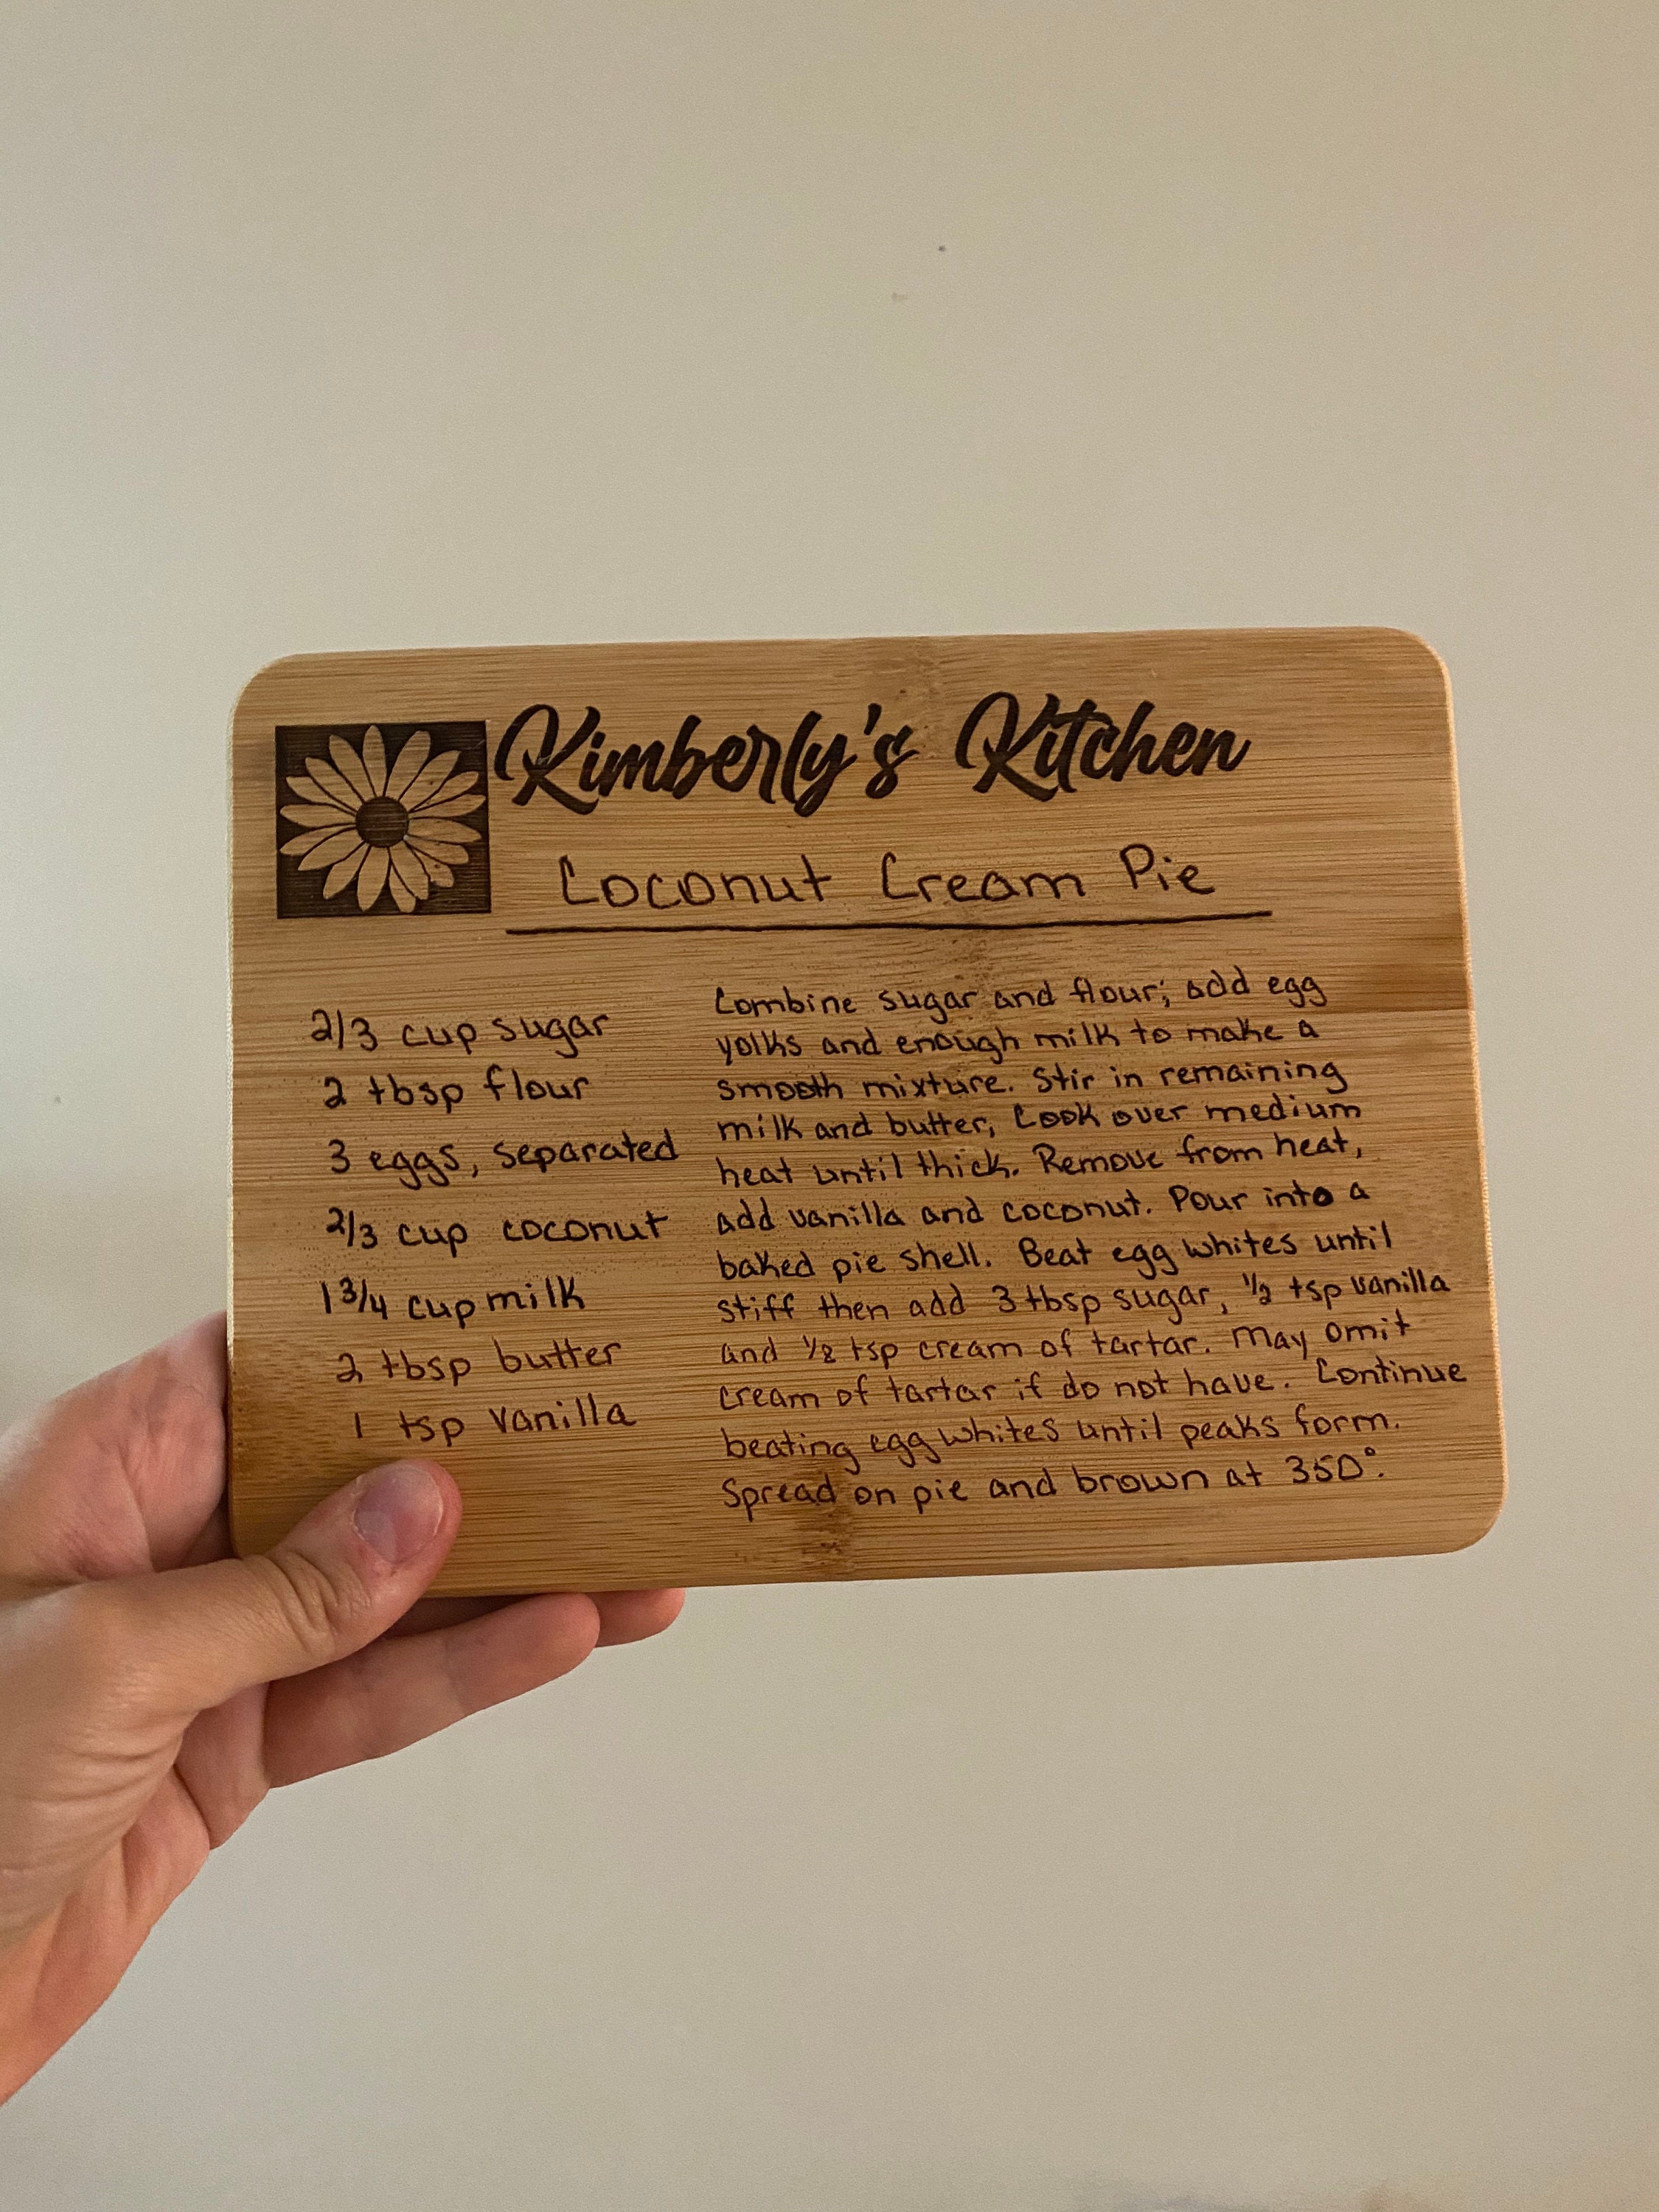 Kimberly's Kitchen
Coconut Cream Pie
2/3 cup sugar
2 tbsp flour
3 eggs, separated
2/3 cup coconut
1 3/4 cup milk
2 tbsp butter
1 tsp vanilla
Combine sugar and flour; add egg
yolks and enough milk to make a
smooth mixture. Stir in remaining
milk and butter, Cook over medium
heat until thick. Remove from heat,
add vanilla and coconut. Pour into a
baked pie shell. Beat egg whites until
stiff then add 3 tbsp sugar, 1/2 tsp vanilla
and 1/8 tsp cream of tartar. May omit
cream of tartar if do not have. Continue
beating egg whites until peaks form.
Spread on pie and brown at 350°.